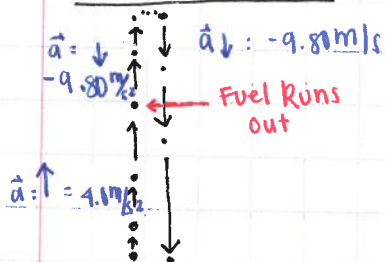 a⃗ = ↓
-9.80m/s²
a⃗ ↓ : -9.80m/s
Fuel Runs
Out
a⃗: ↑ = 4.0m/s²